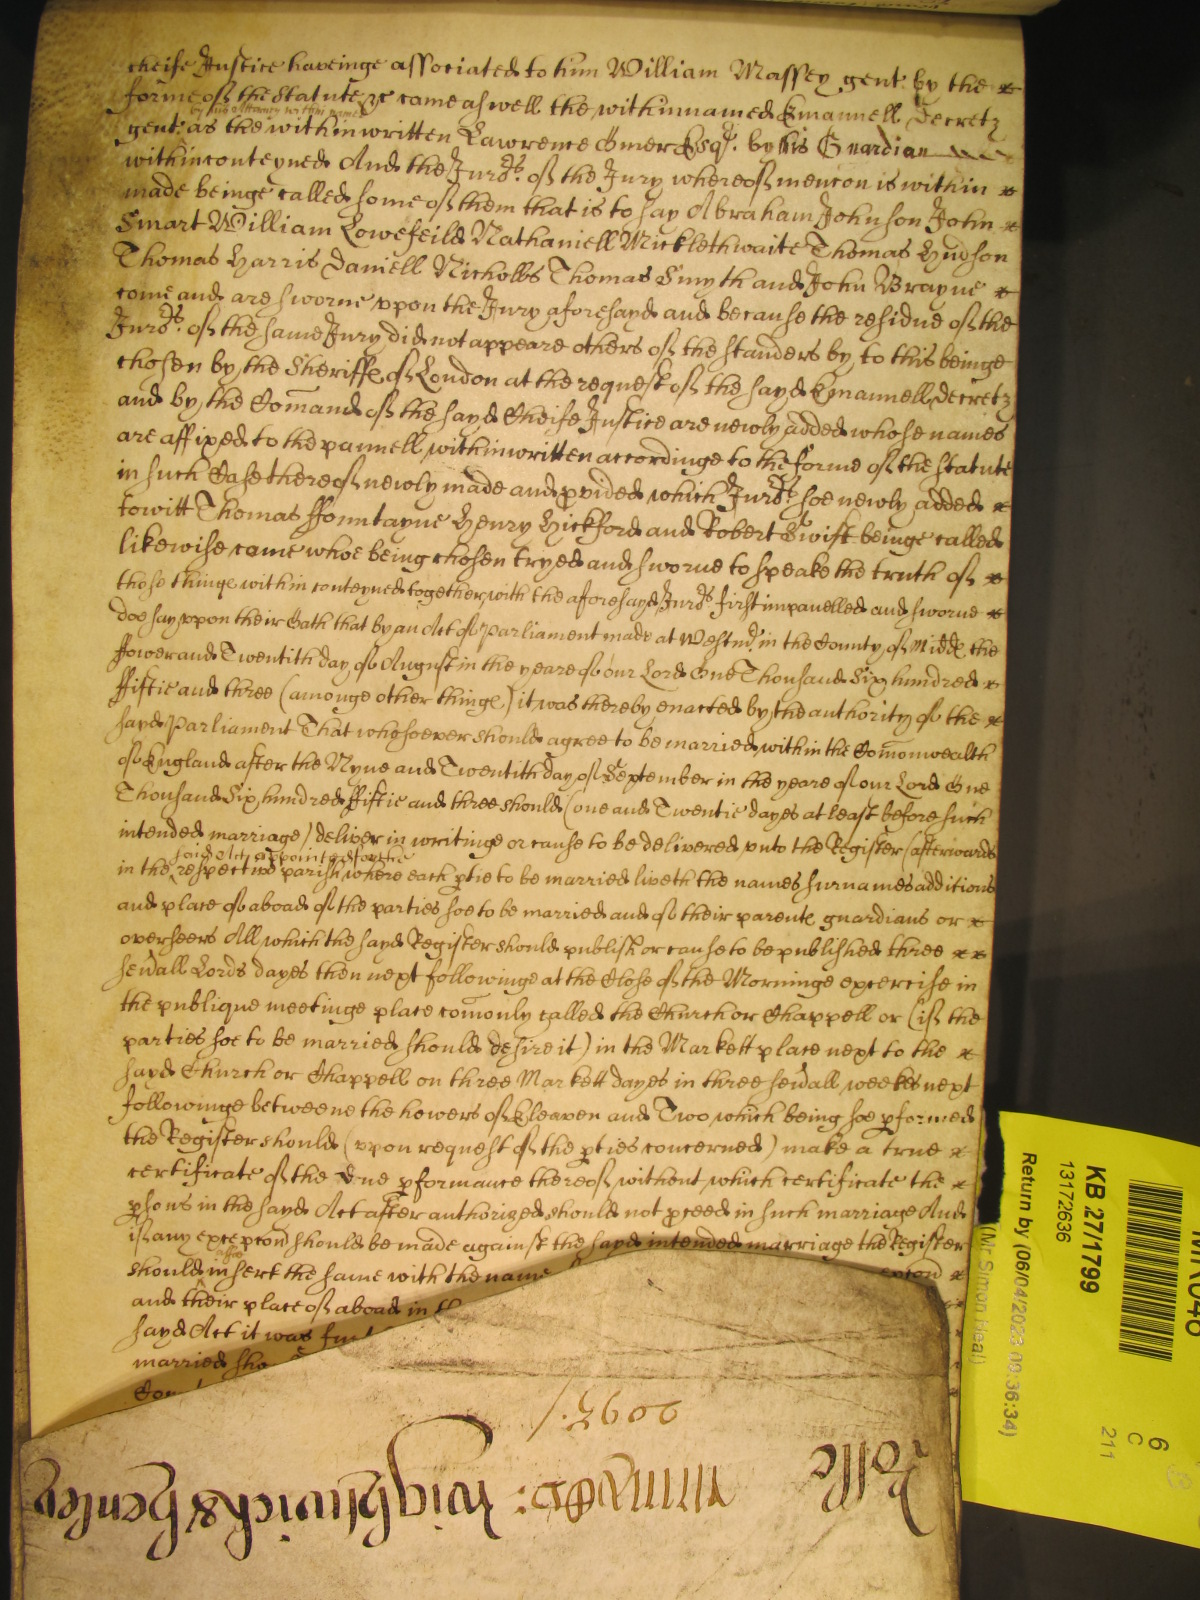 cheife Justice haveinge associated to him William Massey gent by the
forme of the Statute &c came aswell the withinnamed Emanuell Decretz
by his Attorney within named
gent: as the withinwritten Lawrence Gomer Esqr. by his Guardian
withinconteyned And the Jurds. of the Jury whereof mencon is within
made beinge called some of them that is to say Abraham Johnson John
Smart William Lowefeild Nathaniell Micklethwaite Thomas Hudson
Thomas Harris Daniell Nicholls Thomas Smyth and John Brayne
come and are sworne upon the Jury aforesayd and because the residue of the
Jurds. of the same Jury did not appeare others of the standers by to this beinge
chosen by the Sheriffe of London at the request of the sayd Emanuell Decretz
and by the Comand of the sayd Cheife Justice are newly added whose names
are affixed to the pannell withinwritten accordinge to the forme of the statute
in such Case thereof newly made and pvided which Jurds. soe newly added
towitt Thomas ffountayne Henry Hickford and Robert Swift beinge called
likewise came whoe being chosen tryed and sworne to speake the truth of
those thinge within conteyned together with the aforesayd Jurds. first impanelled and sworne
doe say vpon their Oath that by an Act of Parliament made at Westmr. in the County of Midd the
ffower and Twentith day of August in the yeare of our Lord One Thousand Six hundred
ffiftie and three (amonge other thinge) it was thereby enacted by the authority of the
sayd Parliament That whosoever should agree to be married within the Comonwealth
of England after the Nyne and Twentith day of September in the yeare of our Lord One
Thousand Six hundred ffiftie and three should (one and Twentie dayes at least before such
intended marriage) deliver in writinge or cause to be delivered vnto the Register (afterwards
said Act appointed for the
in the respective parish where each ptie to be married liveth the names surnames additions
and place of aboad of the parties soe to be married and of their parente guardians or
overseers All which the sayd Register should publish or cause to be published three
sevall Lords dayes then next followinge at the Close of the Morninge exercise in
the publique meetinge place comonly called the Church or Chappell or (if the
parties soe to be married should desire it) in the Markett place next to the
sayd Church or Chappell on three Markett dayes in three sevall weekes next
followinge betweene the howers of Eleaven and Two which being soe pformed
the Register should (vpon request of the pties concerned) make a true
certificate of the due pformance thereof without which certificate the
psons in the sayd Act after authorized should not pceed in such marriage And
if any excepcon should be made against the sayd intended marriage the Register
also
should insert the same with the name
and their place of aboad in
sayd Act it was
married
Rolle
Wightwick & Henley
MR046
KB 27/1799
13172636
Return by (06/04/2023 09:36:34)
(Mr Simon Neal)
6
C
211